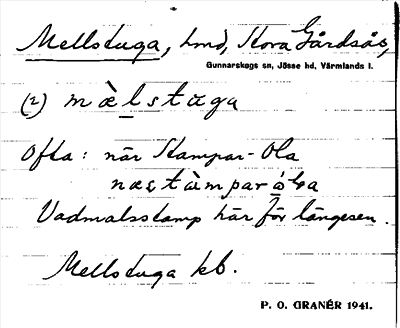 Mellstuga, hmd, Stora Gårdsås,
Gunnarskogs sn, Jösse hd, Värmlands l.
(2) mæ̀lstuga
Ofta: när Stampar-Ola
næstàmparóla
Vadmalsstamp här för längesen.
Mellstuga kb.
P. O. GRANÉR 1941.